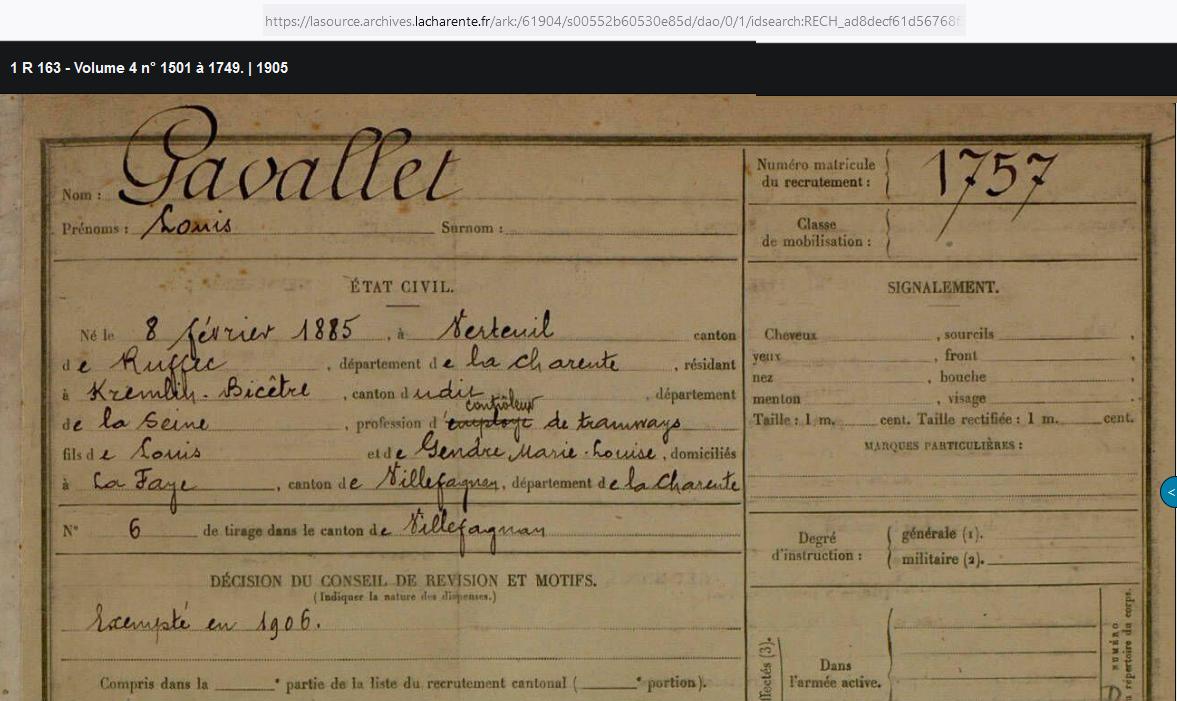 https://lasource.archives.lacharente.fr/ark:/61904/s00552b60530e85d/dao/0/1/idsearch:RECH_ad8decf61d56768f
1 R 163 - Volume 4 n° 1501 à 1749. | 1905
Nom : Gavallet
Prénoms : Louis Surnom :
Numéro matricule du recrutement : 1757
Classe de mobilisation :
ÉTAT CIVIL.
Né le 8 février 1885, à Verteuil canton
de Ruffec, département de la Charente, résidant
à Kremlin-Bicêtre, canton dudit, département
contrôleur
de la Seine, profession d'employé de tramways
fils de Louis et de Gendre Marie-Louise, domiciliés
à La Faye, canton de Villefagnan, département de la Charente
N° 6 de tirage dans le canton de Villefagnan
SIGNALEMENT.
Cheveux , sourcils ,
yeux , front ,
nez , bouche ,
menton , visage .
Taille : 1 m. cent. Taille rectifiée : 1 m. cent.
MARQUES PARTICULIÈRES :
Degré d'instruction : générale (1). militaire (2).
DÉCISION DU CONSEIL DE REVISION ET MOTIFS.
(Indiquer la nature des dispenses.)
Exempté en 1906.
Compris dans la e partie de la liste du recrutement cantonal ( e portion).
Dans
l'armée active.
NUMÉRO
répertoire du corps.
<